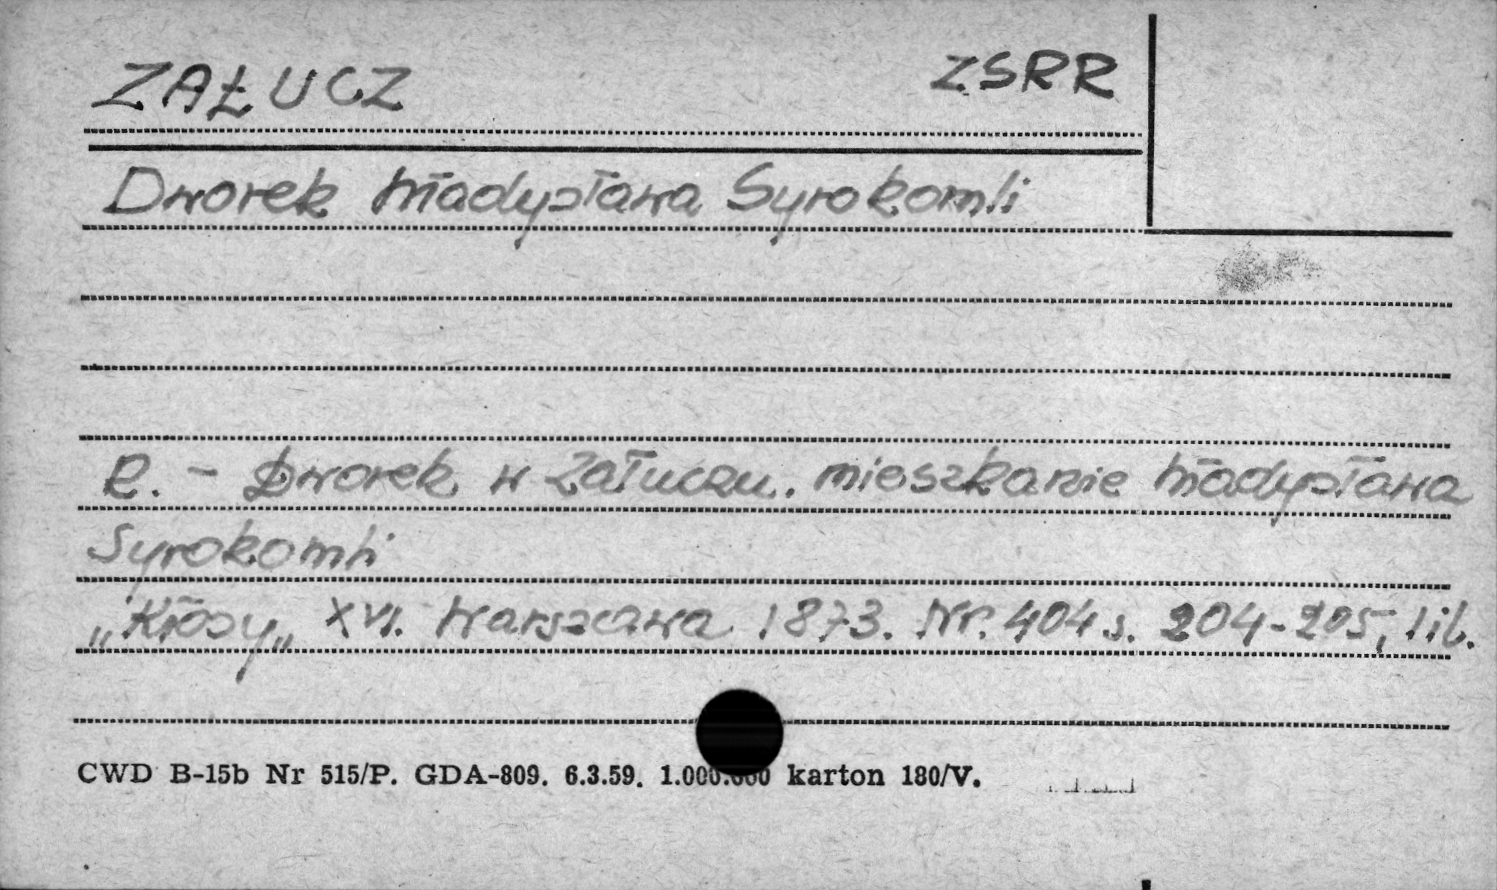 ZAŁUCZ ZSRR
Dworek Władysława Syrokomli
R. - Dworek w Załuczu. mieszkanie Władysława
Syrokomli
"Kłosy" XVI. Warszawa 1873. Nr. 404 s. 204-205, lil.
CWD B-15b Nr 515/P. GDA-809. 6.3.59. 1.000.000 karton 180/V.